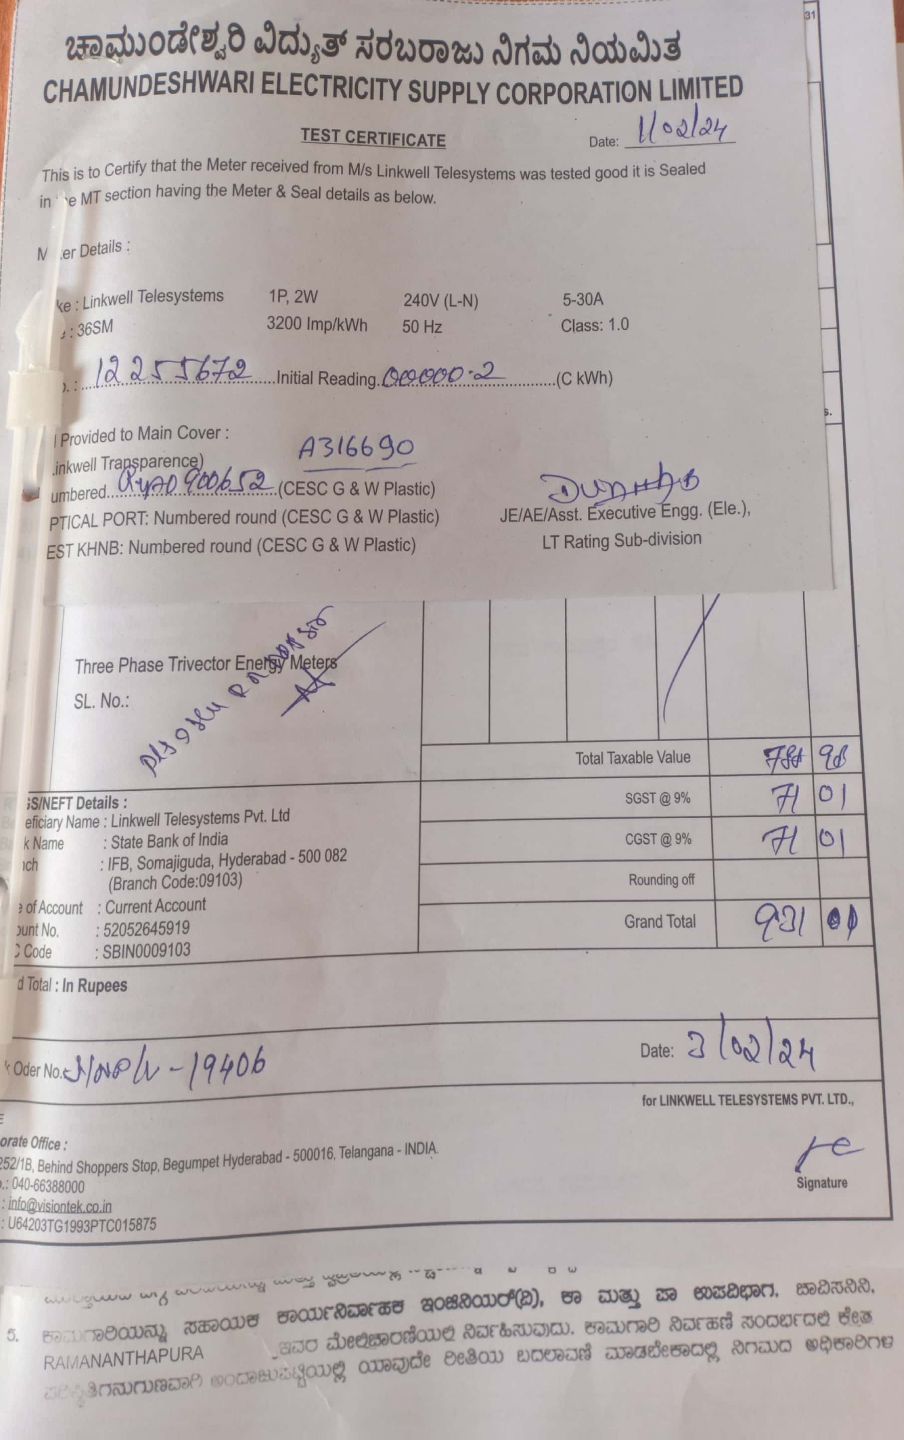 31
ಚಾಮುಂಡೇಶ್ವರಿ ವಿದ್ಯುತ್ ಸರಬರಾಜು ನಿಗಮ ನಿಯಮಿತ
CHAMUNDESHWARI ELECTRICITY SUPPLY CORPORATION LIMITED
TEST CERTIFICATE
Date: 1/02/24
This is to Certify that the Meter received from M/s Linkwell Telesystems was tested good it is Sealed
in e MT section having the Meter & Seal details as below.
M er Details :
ke : Linkwell Telesystems 1P, 2W 240V (L-N) 5-30A
: 36SM 3200 Imp/kWh 50 Hz Class: 1.0
o. : 12255672 Initial Reading 00000.2 (C kWh)
s.
l Provided to Main Cover : A316690
inkwell Transparence)
umbered 900652 (CESC G & W Plastic)
PTICAL PORT: Numbered round (CESC G & W Plastic) JE/AE/Asst. Executive Engg. (Ele.),
EST KHNB: Numbered round (CESC G & W Plastic) LT Rating Sub-division
Three Phase Trivector Energy Meters
SL. No.:
Total Taxable Value 788 98
GS/NEFT Details : SGST @ 9% 71 01
eficiary Name : Linkwell Telesystems Pvt. Ltd
k Name : State Bank of India CGST @ 9% 71 01
nch : IFB, Somajiguda, Hyderabad - 500 082
(Branch Code:09103) Rounding off
e of Account : Current Account
ount No. : 52052645919 Grand Total 931 01
C Code : SBIN0009103
d Total : In Rupees
Oder No. - 19406 Date: 3/02/24
for LINKWELL TELESYSTEMS PVT. LTD.,
orate Office :
252/1B, Behind Shoppers Stop, Begumpet Hyderabad - 500016, Telangana - INDIA.
.: 040-66388000
: info@visiontek.co.in
: U64203TG1993PTC015875
Signature
5. ಕಾಮಗಾರಿಯನ್ನು ಸಹಾಯಕ ಕಾರ್ಯನಿರ್ವಾಹಕ ಇಂಜಿನಿಯರ್(ವಿ), ಕಾ ಮತ್ತು ಪಾ ಉಪವಿಭಾಗ, ಚಾವಿಸನಿನಿ,
RAMANANTHAPURA ಇವರ ಮೇಲ್ವಿಚಾರಣೆಯಲ್ಲಿ ನಿರ್ವಹಿಸುವುದು. ಕಾಮಗಾರಿ ನಿರ್ವಹಣೆ ಸಂದರ್ಭದಲ್ಲಿ ಕ್ಷೇತ್ರ
ಅಂದಾಜುಪಟ್ಟಿಯಲ್ಲಿ ಯಾವುದೇ ರೀತಿಯ ಬದಲಾವಣೆ ಮಾಡಬೇಕಾದಲ್ಲಿ ನಿಗಮದ ಅಧಿಕಾರಿಗಳ